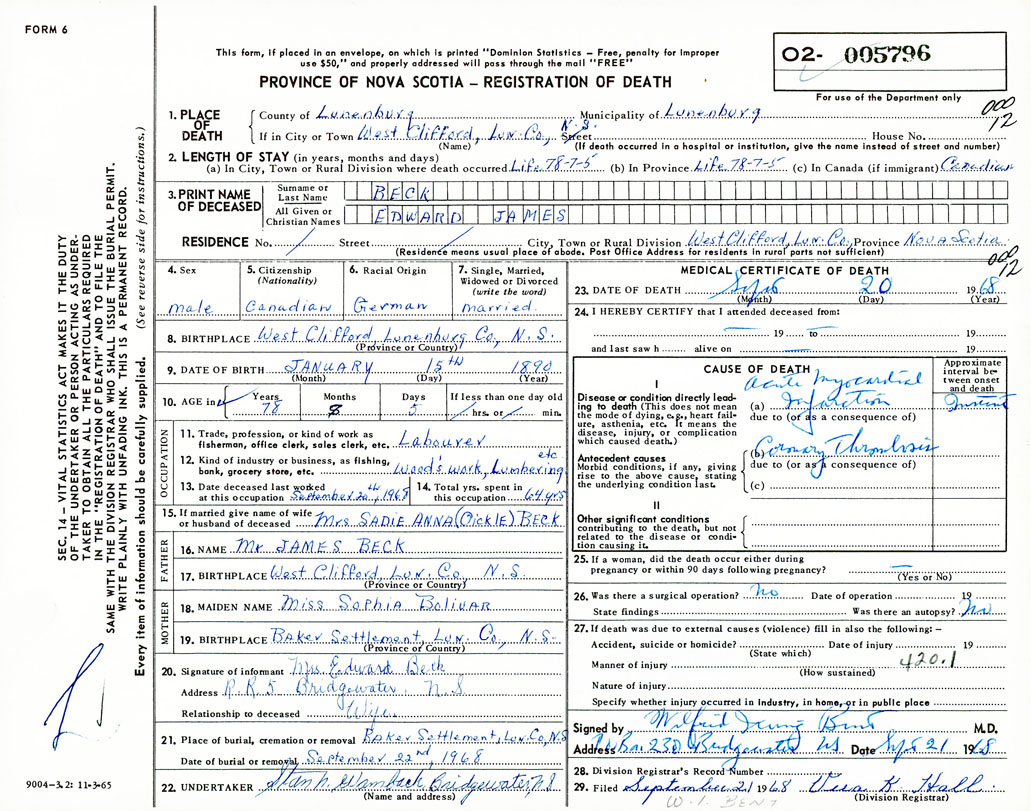 FORM 6
This form, if placed in an envelope, on which is printed "Dominion Statistics – Free, penalty for improper
use $50," and properly addressed will pass through the mail "FREE"
PROVINCE OF NOVA SCOTIA – REGISTRATION OF DEATH
02- 005796
For use of the Department only
000
12
1. PLACE OF DEATH
County of Lunenburg Municipality of Lunenburg
If in City or Town West Clifford, Lun. Co., N.S. Street House No.
(Name) (If death occurred in a hospital or institution, give the name instead of street and number)
2. LENGTH OF STAY (in years, months and days)
(a) In City, Town or Rural Division where death occurred Life 78-7-5 (b) In Province Life 78-7-5 (c) In Canada (if immigrant) Canadian
3. PRINT NAME OF DECEASED
Surname or Last Name BECK
All Given or Christian Names EDWARD JAMES
RESIDENCE No. / Street / City, Town or Rural Division West Clifford, Lun. Co., Province Nova Scotia
(Residence means usual place of abode. Post Office Address for residents in rural parts not sufficient)
000
12
4. Sex
male
5. Citizenship
(Nationality)
Canadian
6. Racial Origin
German
7. Single, Married,
Widowed or Divorced
(write the word)
married.
8. BIRTHPLACE West Clifford, Lunenburg Co., N.S.
(Province or Country)
9. DATE OF BIRTH JANUARY 15th 1890
(Month) (Day) (Year)
10. AGE in Years Months Days If less than one day old
78 8 5 hrs. or min.
OCCUPATION
11. Trade, profession, or kind of work as
fisherman, office clerk, sales clerk, etc. Labourer
12. Kind of industry or business, as fishing,
bank, grocery store, etc. Wood's work, Lumbering etc
13. Date deceased last worked
at this occupation September 20th, 1968
14. Total yrs. spent in
this occupation 64 yrs
15. If married give name of wife
or husband of deceased Mrs SADIE ANNA (Oickle) BECK
FATHER
16. NAME Mr JAMES BECK
17. BIRTHPLACE West Clifford, Lun. Co. N.S.
(Province or Country)
MOTHER
18. MAIDEN NAME Miss Sophia Bolivar
19. BIRTHPLACE Baker Settlement, Lun. Co., N.S.
(Province or Country)
20. Signature of informant Mrs. Edward Beck
Address R.R. 5 Bridgewater, N.S
Relationship to deceased Wife
21. Place of burial, cremation or removal Baker Settlement, Lun. Co, N.S
Date of burial or removal September 22nd, 1968
22. UNDERTAKER Bridgewater, N.S
(Name and address)
MEDICAL CERTIFICATE OF DEATH
23. DATE OF DEATH Sept 20 1968
(Month) (Day) (Year)
24. I HEREBY CERTIFY that I attended deceased from:
19 to 19
and last saw h alive on 19
CAUSE OF DEATH
Approximate
interval be-
tween onset
and death
I
Disease or condition directly lead-
ing to death (This does not mean
the mode of dying, e.g., heart fail-
ure, asthenia, etc. It means the
disease, injury, or complication
which caused death.)
(a) Acute Myocardial
Infarction Instant
due to (or as a consequence of)
Antecedent causes
Morbid conditions, if any, giving
rise to the above cause, stating
the underlying condition last.
(b) Coronary Thrombosis
due to (or as a consequence of)
(c)
II
Other significant conditions
contributing to the death, but not
related to the disease or condi-
tion causing it.
25. If a woman, did the death occur either during
pregnancy or within 90 days following pregnancy?
(Yes or No)
26. Was there a surgical operation? No Date of operation 19
State findings Was there an autopsy? No
27. If death was due to external causes (violence) fill in also the following: –
Accident, suicide or homicide? Date of injury 19
(State which)
Manner of injury 420.1
(How sustained)
Nature of injury
Specify whether injury occurred in industry, in home, or in public place
Signed by Wilfrid Irving Bent M.D.
Address Box 230 Bridgewater NS Date Sept 21 1968
28. Division Registrar's Record Number
29. Filed September 21 1968 K. Hall
(Division Registrar)
W. I. BENT
SEC. 14 – VITAL STATISTICS ACT MAKES IT THE DUTY
OF THE UNDERTAKER OR PERSON ACTING AS UNDER-
TAKER TO OBTAIN ALL THE PARTICULARS REQUIRED
IN THE "REGISTRATION OF DEATH" AND TO FILE THE
SAME WITH THE DIVISION REGISTRAR WHO SHALL ISSUE THE BURIAL PERMIT.
WRITE PLAINLY WITH UNFADING INK. THIS IS A PERMANENT RECORD.
Every item of information should be carefully supplied. (See reverse side for instructions.)
9004-3.2: 11-3-65